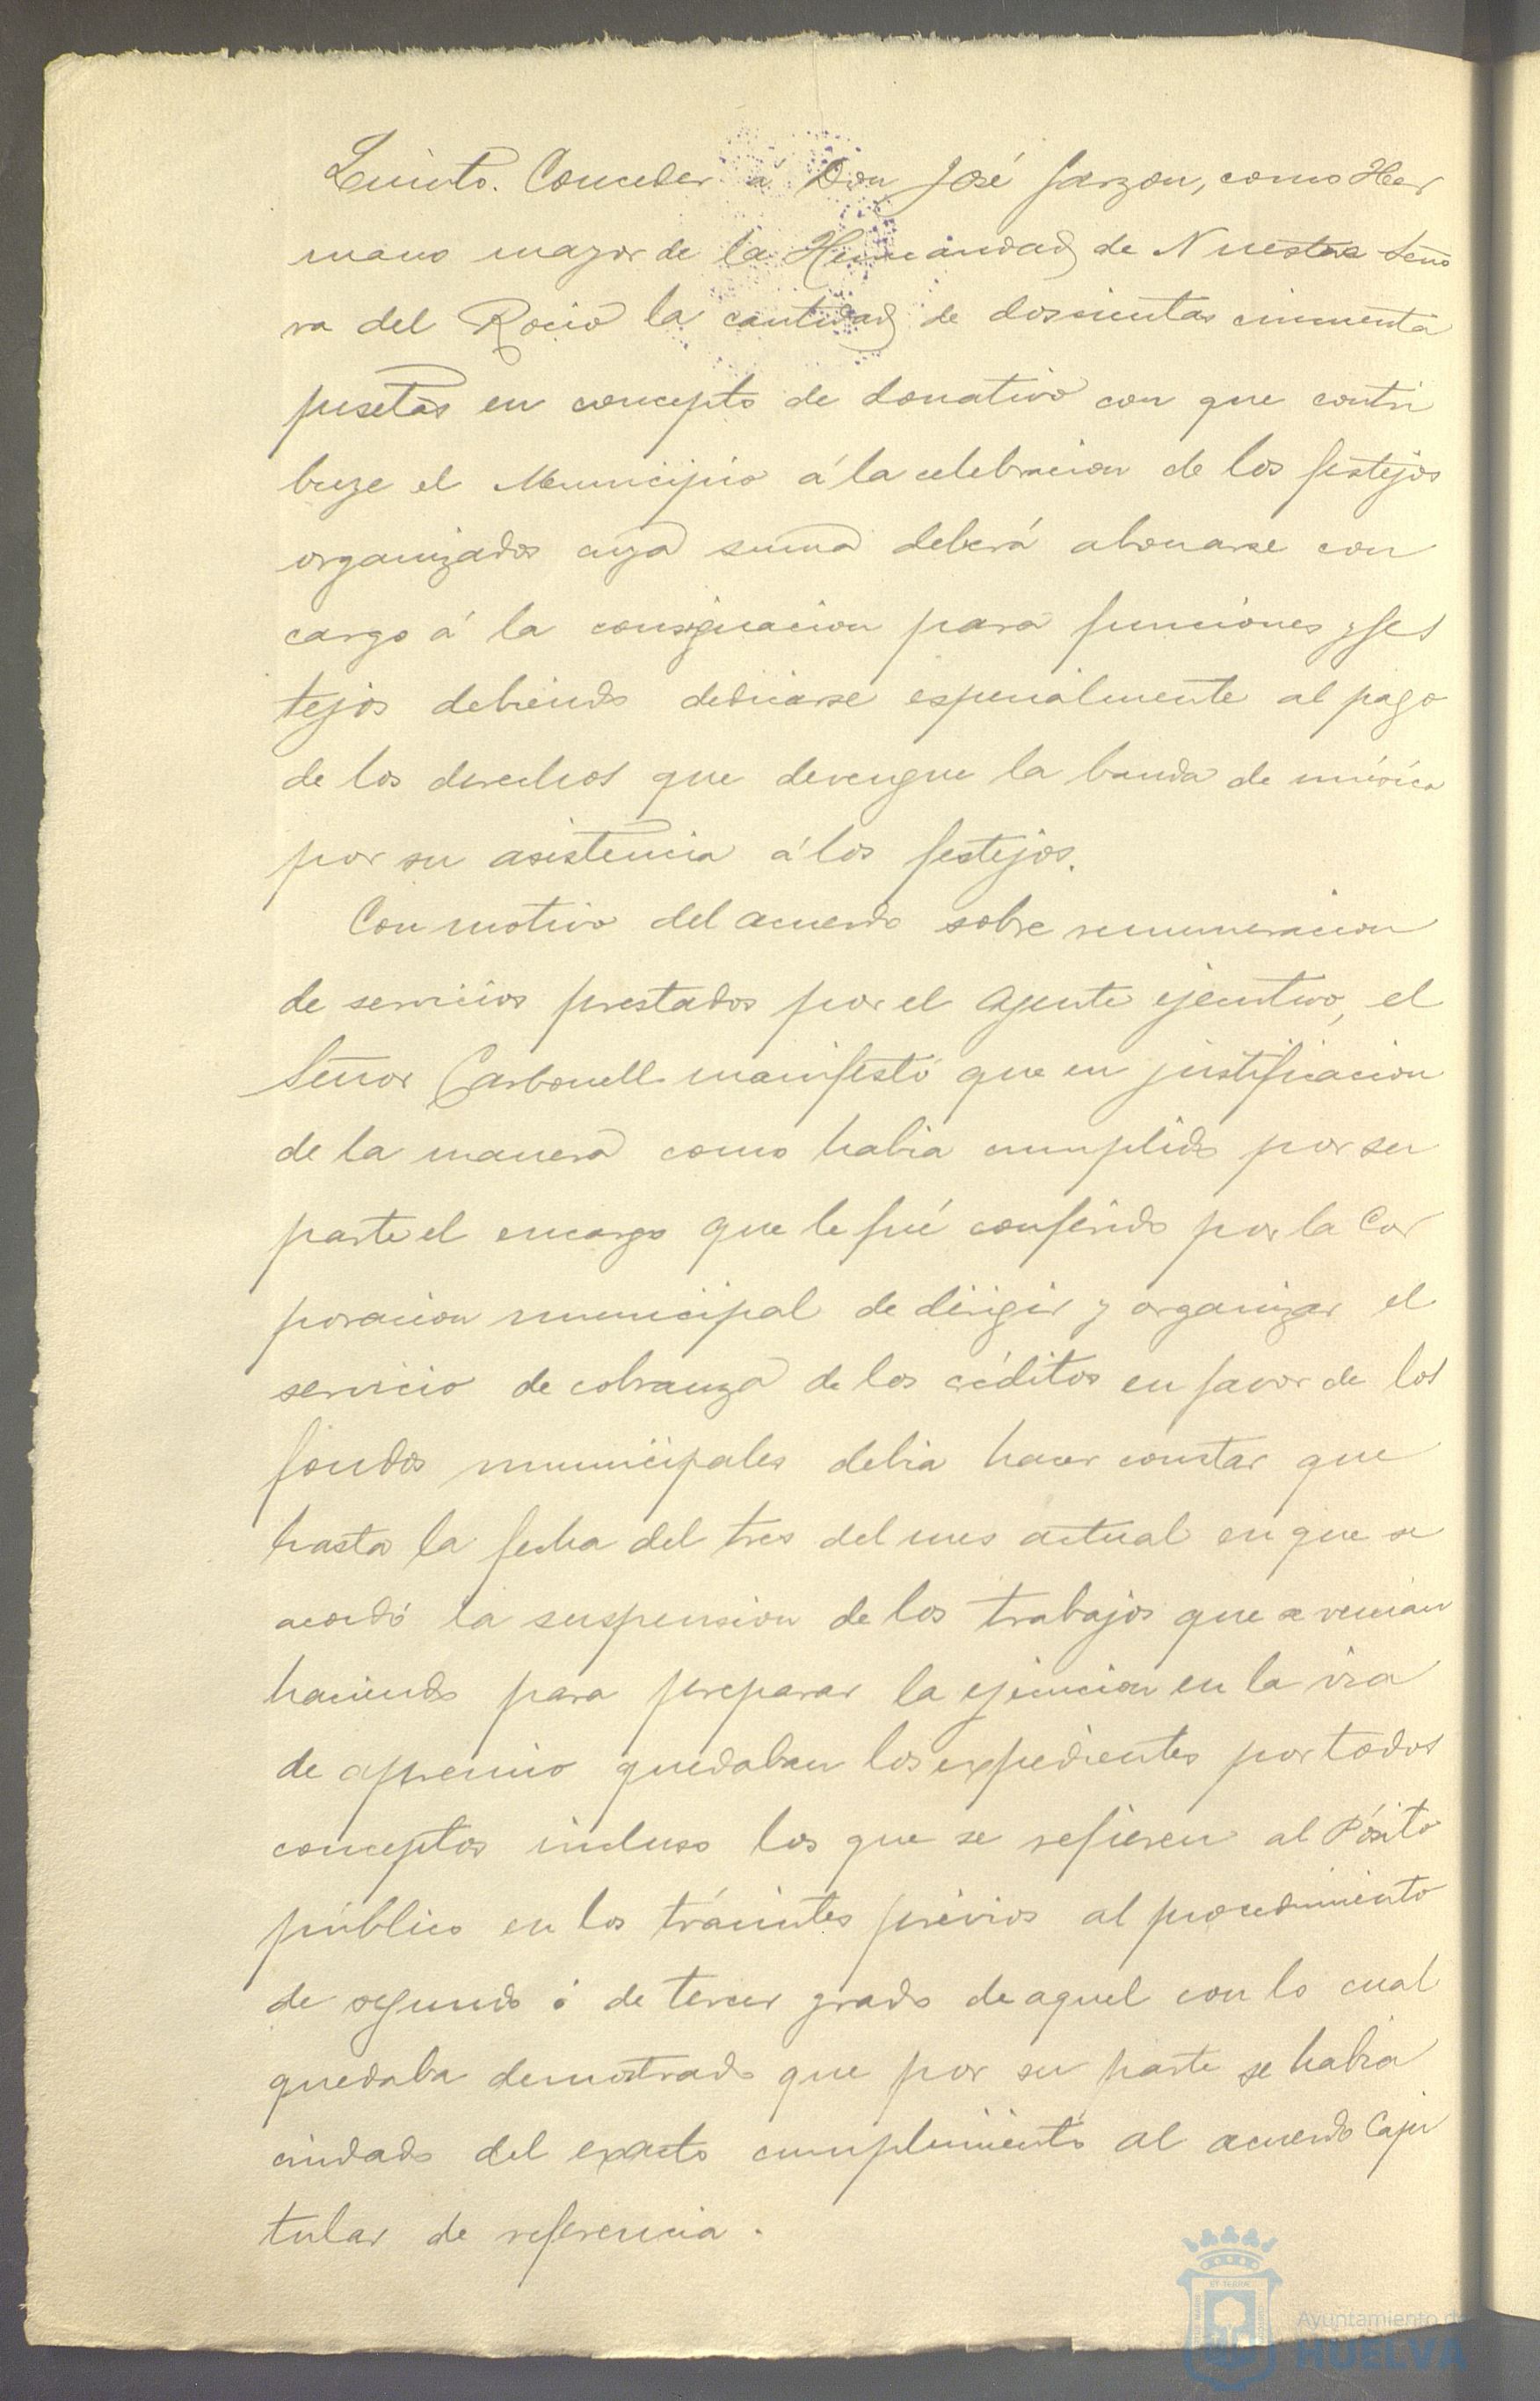 Quinto. Conceder á Don José Garzon, como Her
mano mayor de la Hermandad de Nuestra Seño
ra del Rocio la cantidad de doscientas cincuenta
pesetas en concepto de donativo con que contri
buye el Municipio á la celebracion de los festejos
organizados cuya suma deberá abonarse con
cargo á la consignacion para funciones y fes
tejos debiendo dedicarse especialmente al pago
de los derechos que devengue la banda de música
por su asistencia á los festejos.
Con motivo del acuerdo sobre remuneracion
de servicios prestados por el Agente ejecutivo, el
Señor Carbonell manifestó que en justificacion
de la manera como habia cumplido por su
parte el encargo que le fué conferido por la Cor
poracion municipal de dirigir y organizar el
servicio de cobranza de los créditos en favor de los
fondos municipales debia hacer constar que
hasta la fecha del tres del mes actual en que se
acordó la suspension de los trabajos que se venian
haciendo para preparar la ejecucion en la via
de apremio quedaban los expedientes por todos
conceptos incluso los que se refieren al Pósito
público en los trámites prévios al procedimiento
de segundo ó de tercer grado de aquel con lo cual
quedaba demostrado que por su parte se habia
cuidado del exacto cumplimiento al acuerdo Capi
tular de referencia.
Ayuntamiento de
HUELVA